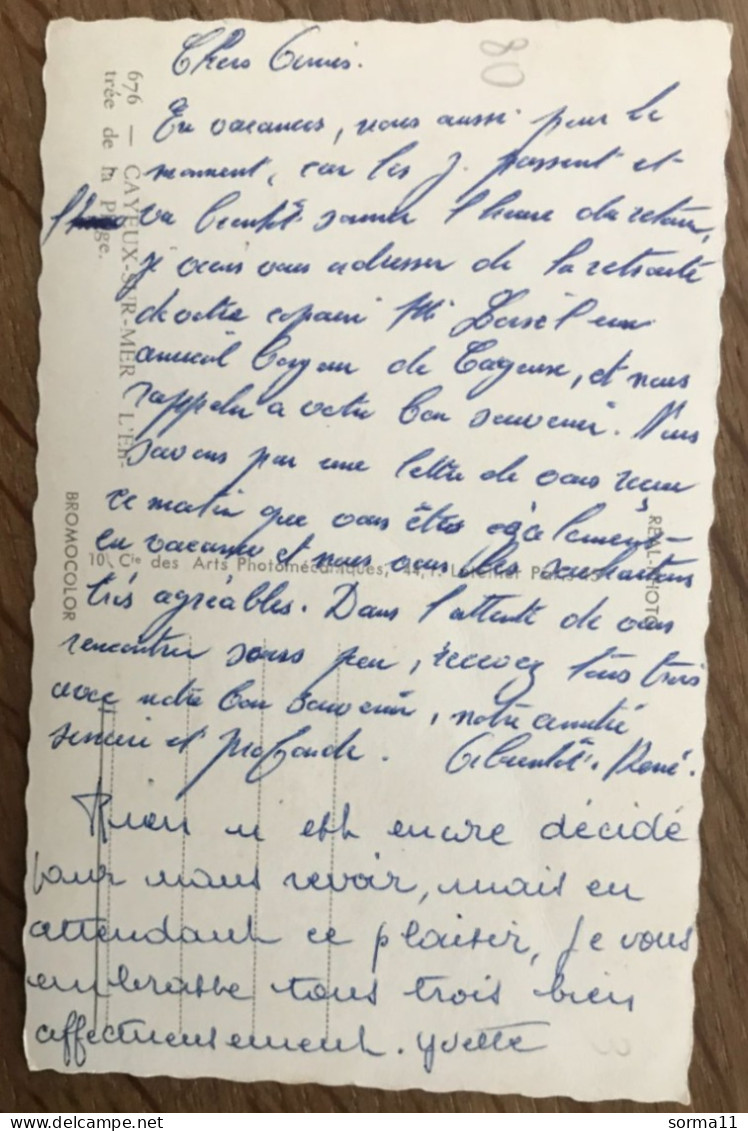 80
Chers Amis.
En vacances, nous aussi pour le
moment, car les j. passent et
va bientôt sonner l'heure du retour,
j'ai vous adresser de la retraite
de votre copain Mr un
amical de Cayeux, et nous
rappeler à votre bon souvenir. Nous
savons par une lettre de vous reçue
ce matin que vous êtes également
en vacances et nous vous les souhaitons
très agréables. Dans l'attente de vous
rencontrer sous peu, recevez tous trois
avec notre bon souvenir, notre amitié
sincère et profonde. A bientôt. René.
Rien n'est encore décidé
pour nous revoir, mais en
attendant ce plaisir, je vous
embrasse tous trois bien
affectueusement. Yvette
676 — CAYEUX-SUR-MER L'En-
trée de la Plage.
BROMOCOLOR
10, Cie des Arts Photomécaniques, 44, r. Letellier Paris
REAL-PHOTO
sorma11